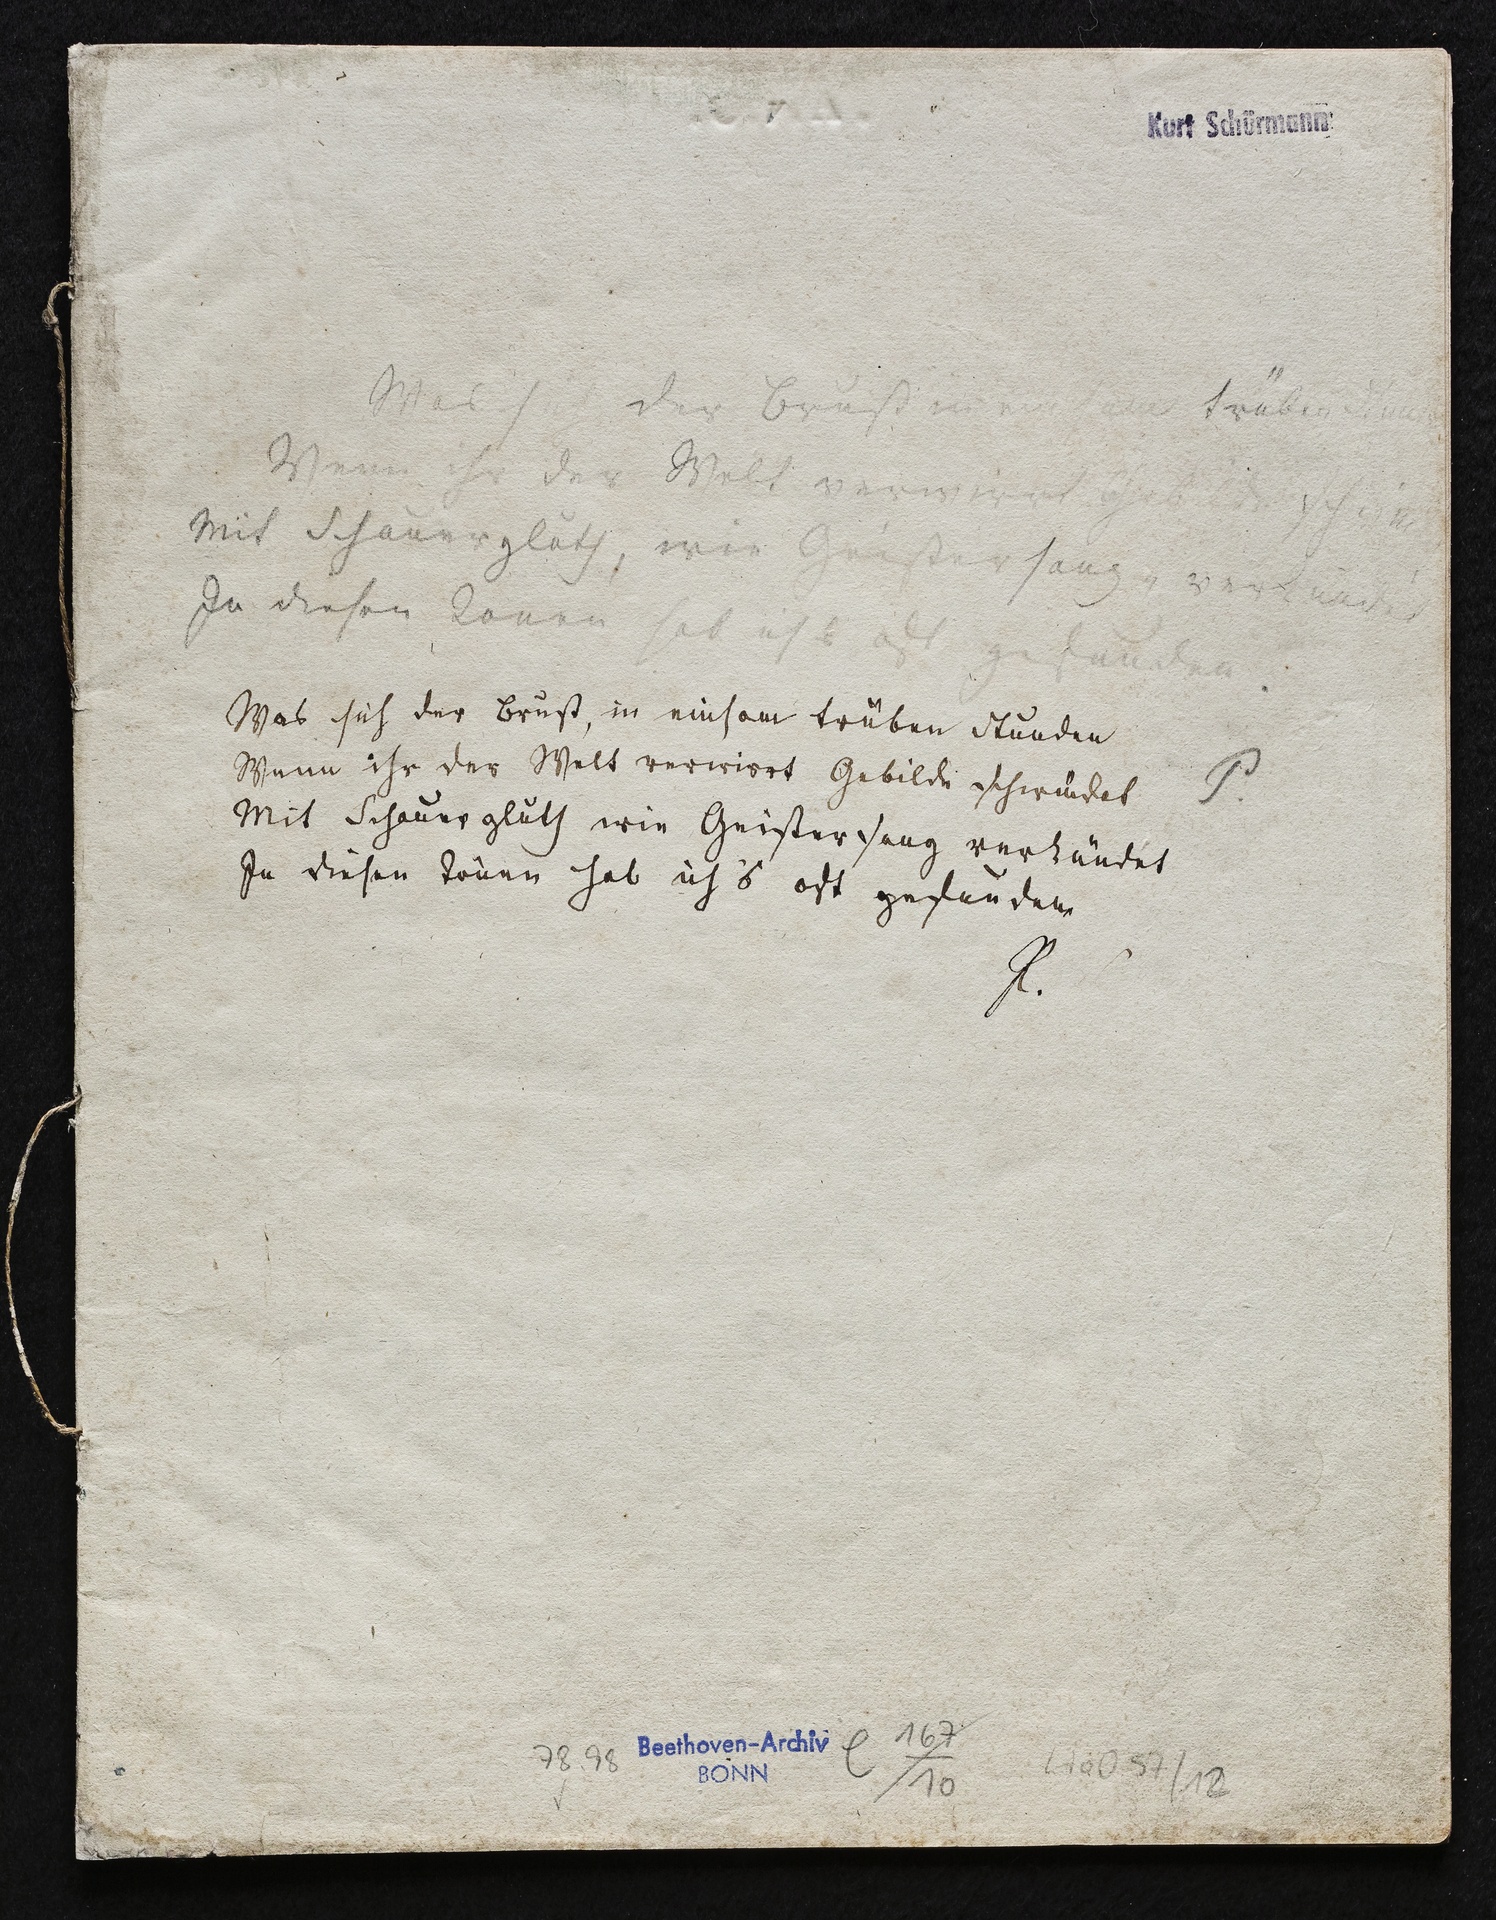 Kurt Schürmann
Was der Brust trüben
Wenn ihr der Welt verwirrt
Mit Schauergluth, wie Geistersang verkündet
In diesen Tönen hab ich's oft gefunden
Was sich der Brust, in einsam trüben Stunden
Wenn ihr der Welt verwirrt Gebilde schwindet
P.
Mit Schauergluth wie Geistersang verkündet
In diesen Tönen hab ich's oft gefunden
P.
78.98
Beethoven-Archiv
BONN
C 167/10
57/12